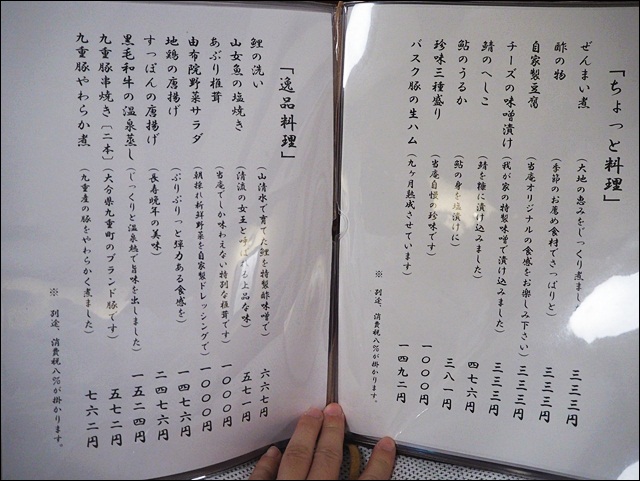 「ちょっと料理」
ぜんまい煮 (大地の恵みをじっくり煮まし 三三三円
酢の物 (季節のお薦め食材でさっぱりと) 三三三円
自家製豆腐 (当庵オリジナルの食感をお楽しみ下さい) 三三三円
チーズの味噌漬け (我が家の特製味噌で漬け込みました) 三三三円
鯖のへしこ (鯖を糠に漬け込みました) 四七六円
鮎のうるか (鮎の身を塩漬けに) 三八一円
珍味三種盛り (当庵自慢の珍味です) 一〇〇〇円
バスク豚の生ハム (九ヶ月熟成させています) 一四九二円
※ 別途、消費税八%が掛かります。
「逸品料理」
鯉の洗い (山清水で育てた鯉を特製酢味噌で) 六六七円
山女魚の塩焼き (清流の女王と呼ばれる上品な味) 五七一円
あぶり椎茸 (当庵でしか味わえない特別な椎茸です) 一〇〇〇円
由布院野菜サラダ (朝採れ新鮮野菜を自家製ドレッシングで) 一〇〇〇円
地鶏の唐揚げ (ぷりぷりっと弾力ある食感を) 一四七六円
すっぽんの唐揚げ (長寿晩年の美味) 二四七六円
黒毛和牛の温泉蒸し (じっくりと温泉熱で旨味を出しました) 一五二四円
九重豚串焼き[二本] (大分県九重町のブランド豚です) 五七二円
九重豚やわらか煮 (九重産の豚をやわらかく煮ました) 七六二円
※ 別途、消費税八%が掛かります。